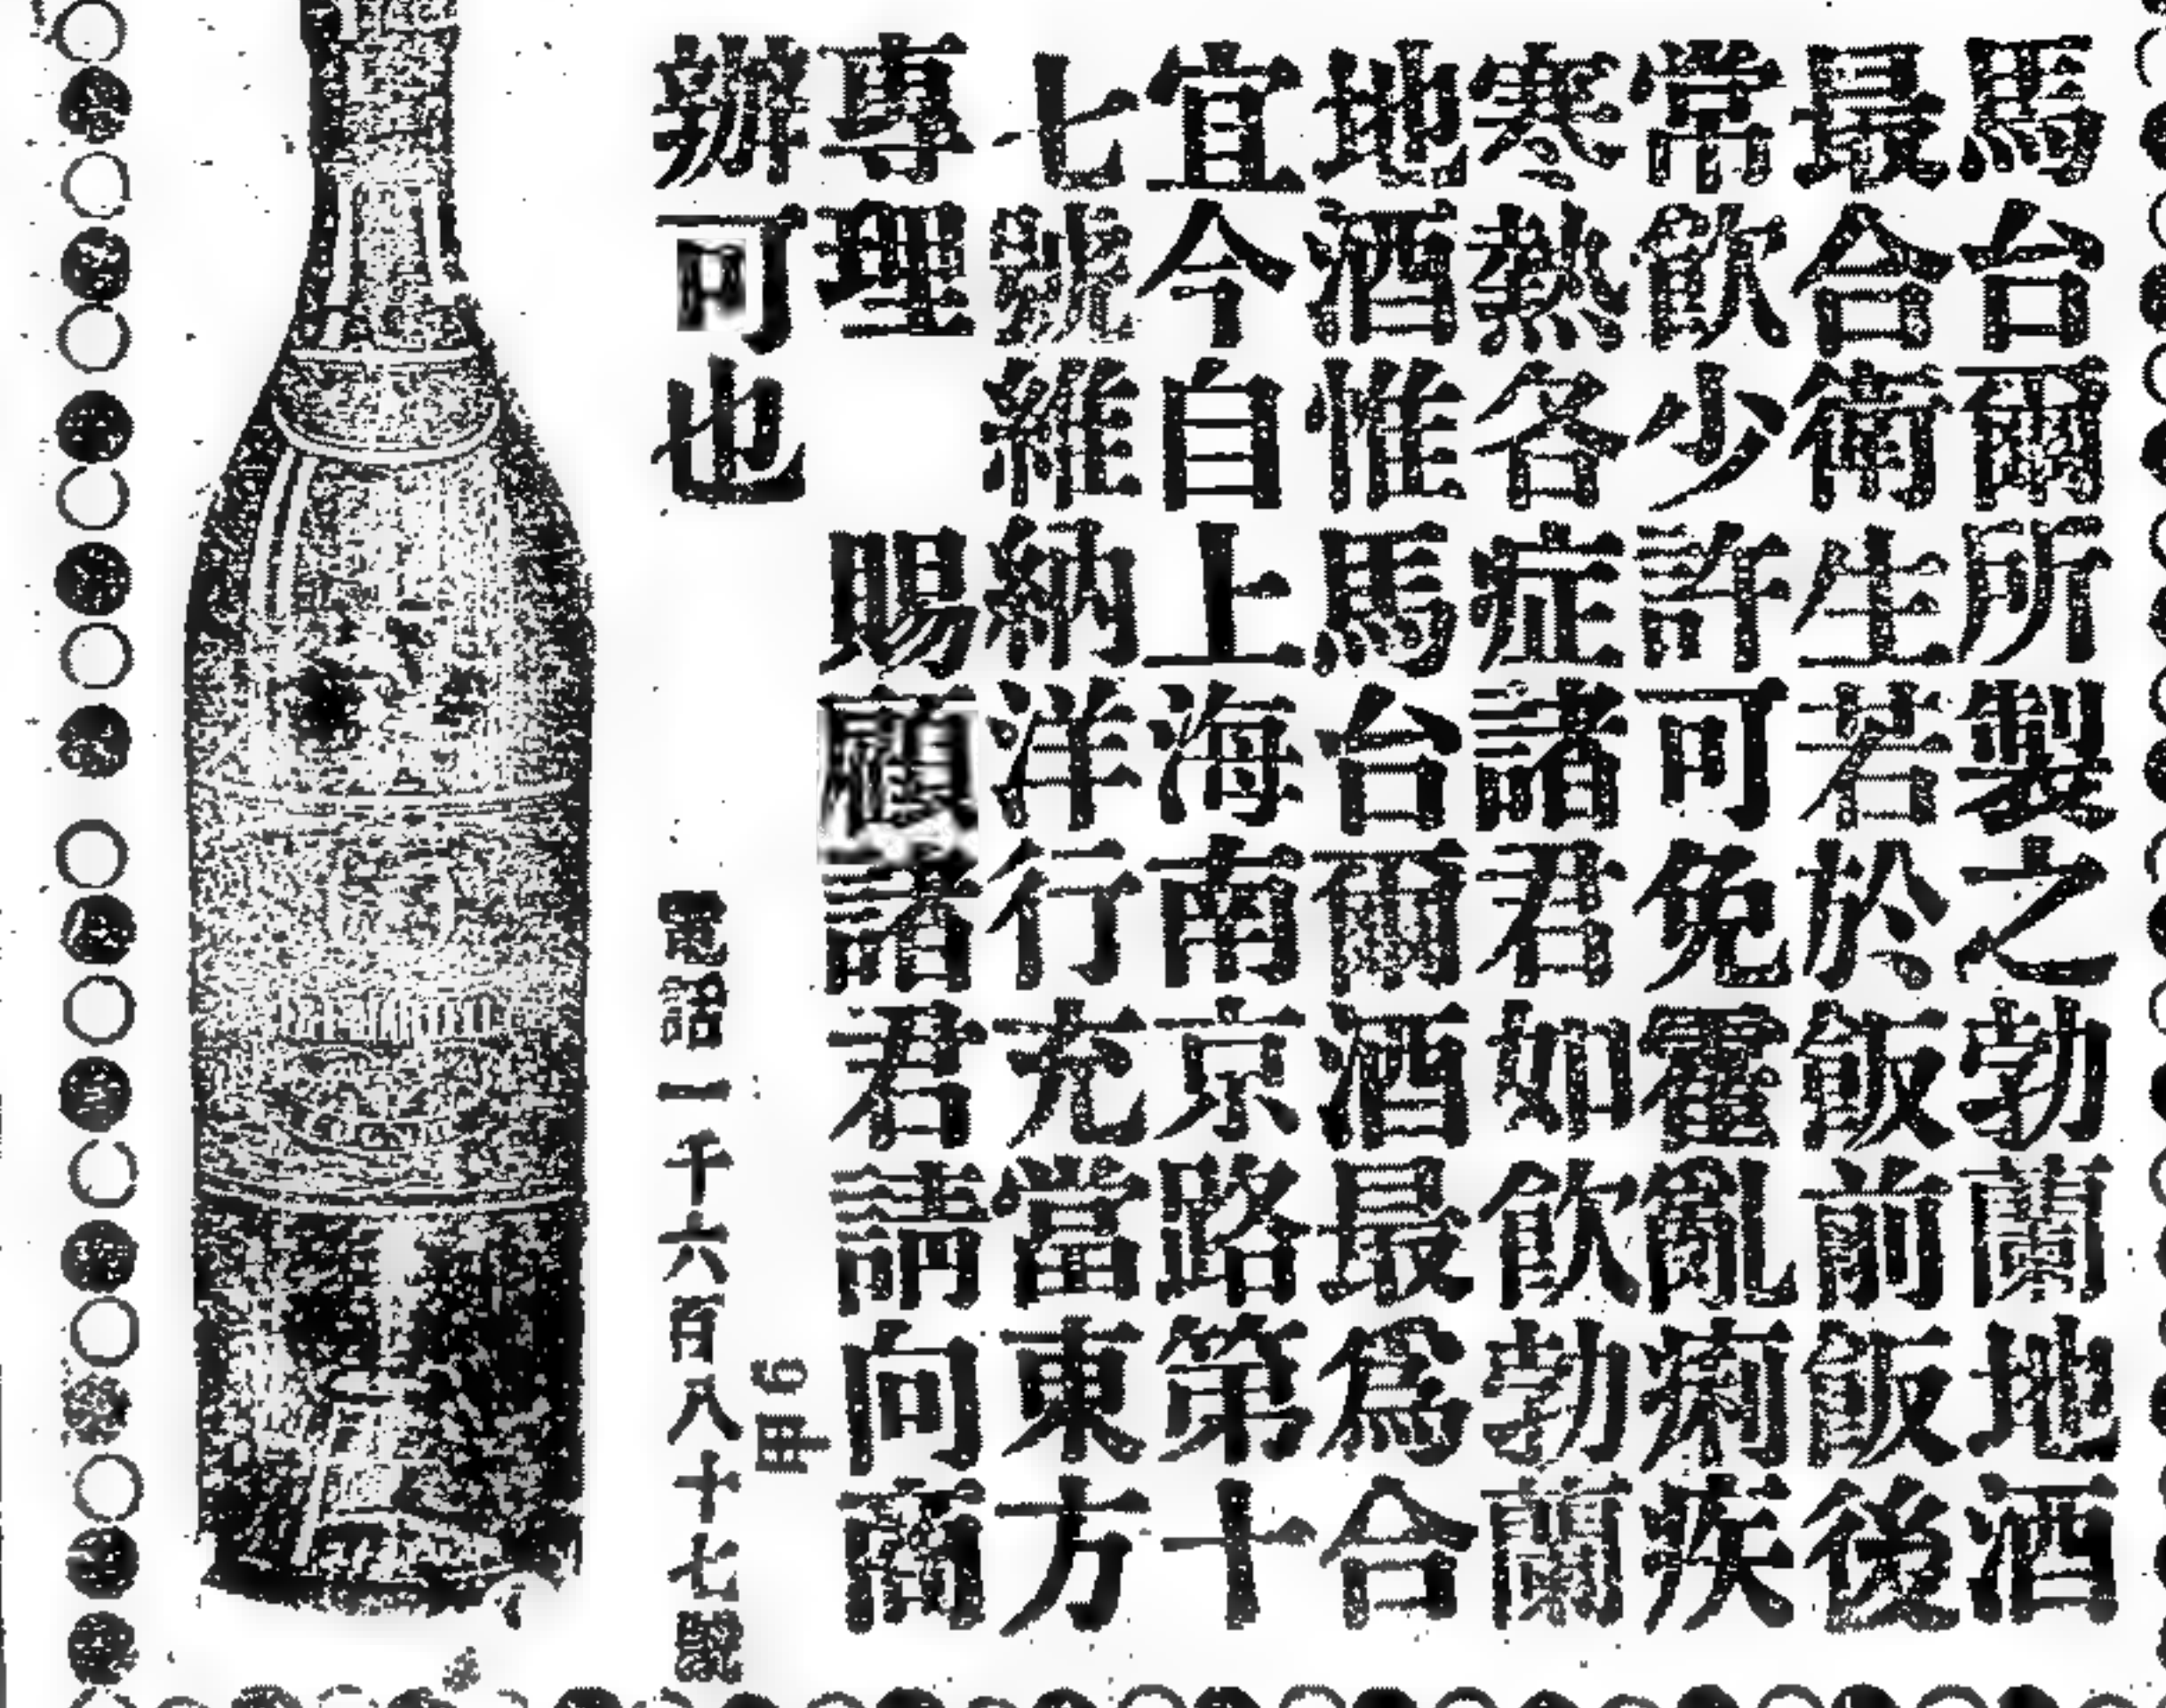 馬台爾所製之勃蘭地酒
最合衛生若於飯前飯後
常飲少許可免霍亂痢疾
寒熱各症諸君如飲勃蘭
地酒惟馬台爾酒最爲合
宜今自上海南京路第十
七號維納洋行充當東方
專理　賜顧諸君請向商
辦可也
電話一千六百八十七號
甲6